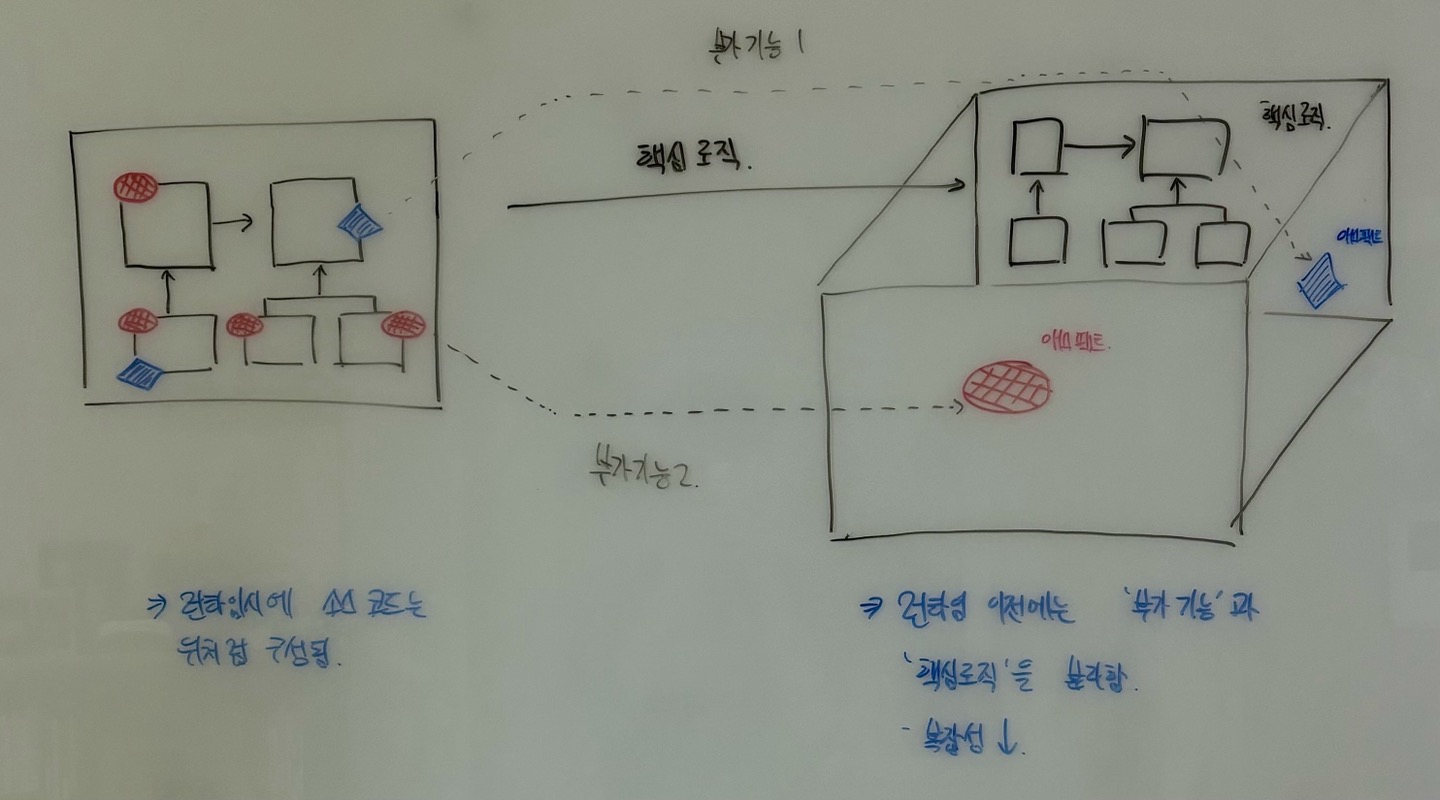 부가기능 1
핵심 로직.
핵심로직.
애스팩트
애스팩트.
부가기능 2.
⇒ 런타임시에 소스 코드는
위처럼 구성됨.
⇒ 런타임 이전에는 '부가기능'과
'핵심로직'을 분리함.
- 복잡성 ↓.